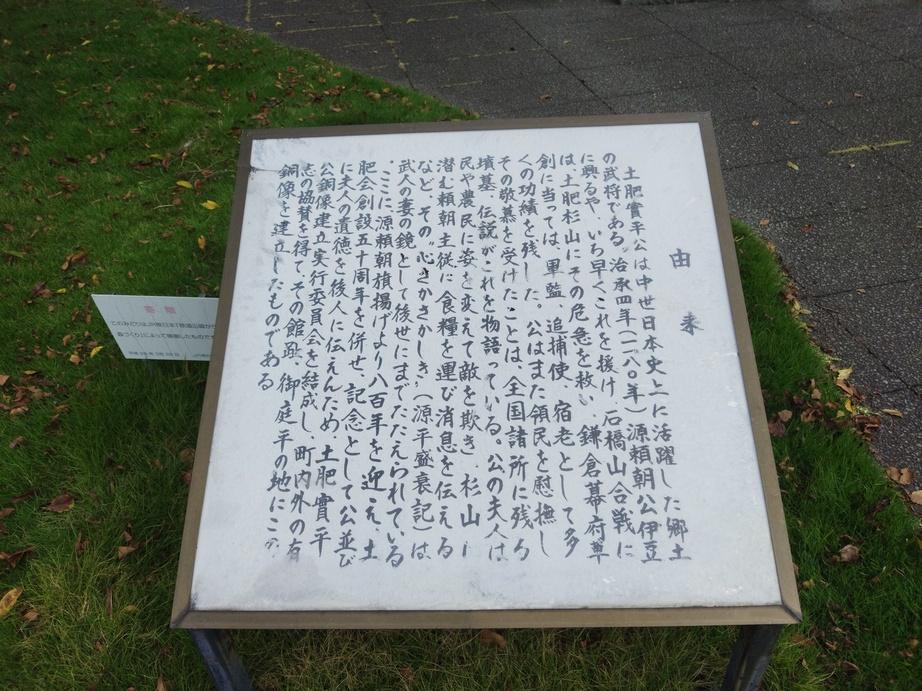 由来
土肥實平公は中世日本史上に活躍した郷土
の武将である。治承四年(一一八〇年)源頼朝公伊豆
に興るや、いち早くこれを援け、石橋山合戦に
は土肥杉山にその危急を救い、鎌倉幕府草
創に当っては、軍監、追捕使、宿老として多
くの功績を残した。公はまた領民を慰撫し
その敬慕を受けたことは、全国諸所に残る
墳墓、伝説がこれを物語っている。公の夫人は
民や農民に姿を変えて敵を欺き、杉山に
潜む頼朝主従に食糧を運び消息を伝える
など、その“心さかさかしき”(源平盛衰記)は
武人の妻の鏡として後世にまでたたえられている
。ここに源頼朝旗揚げより八百年を迎え、土
肥会創設五十周年を併せ、記念として公並び
に夫人の遺徳を後人に伝えんため、土肥實平
公銅像建立実行委員会を結成し、町内外の有
志の協賛を得て、その館趾、御庭平の地にこの
銅像を建立したものである
このみどりは、JR東日本「鉄道沿線から
森づくり」によって植樹したものです